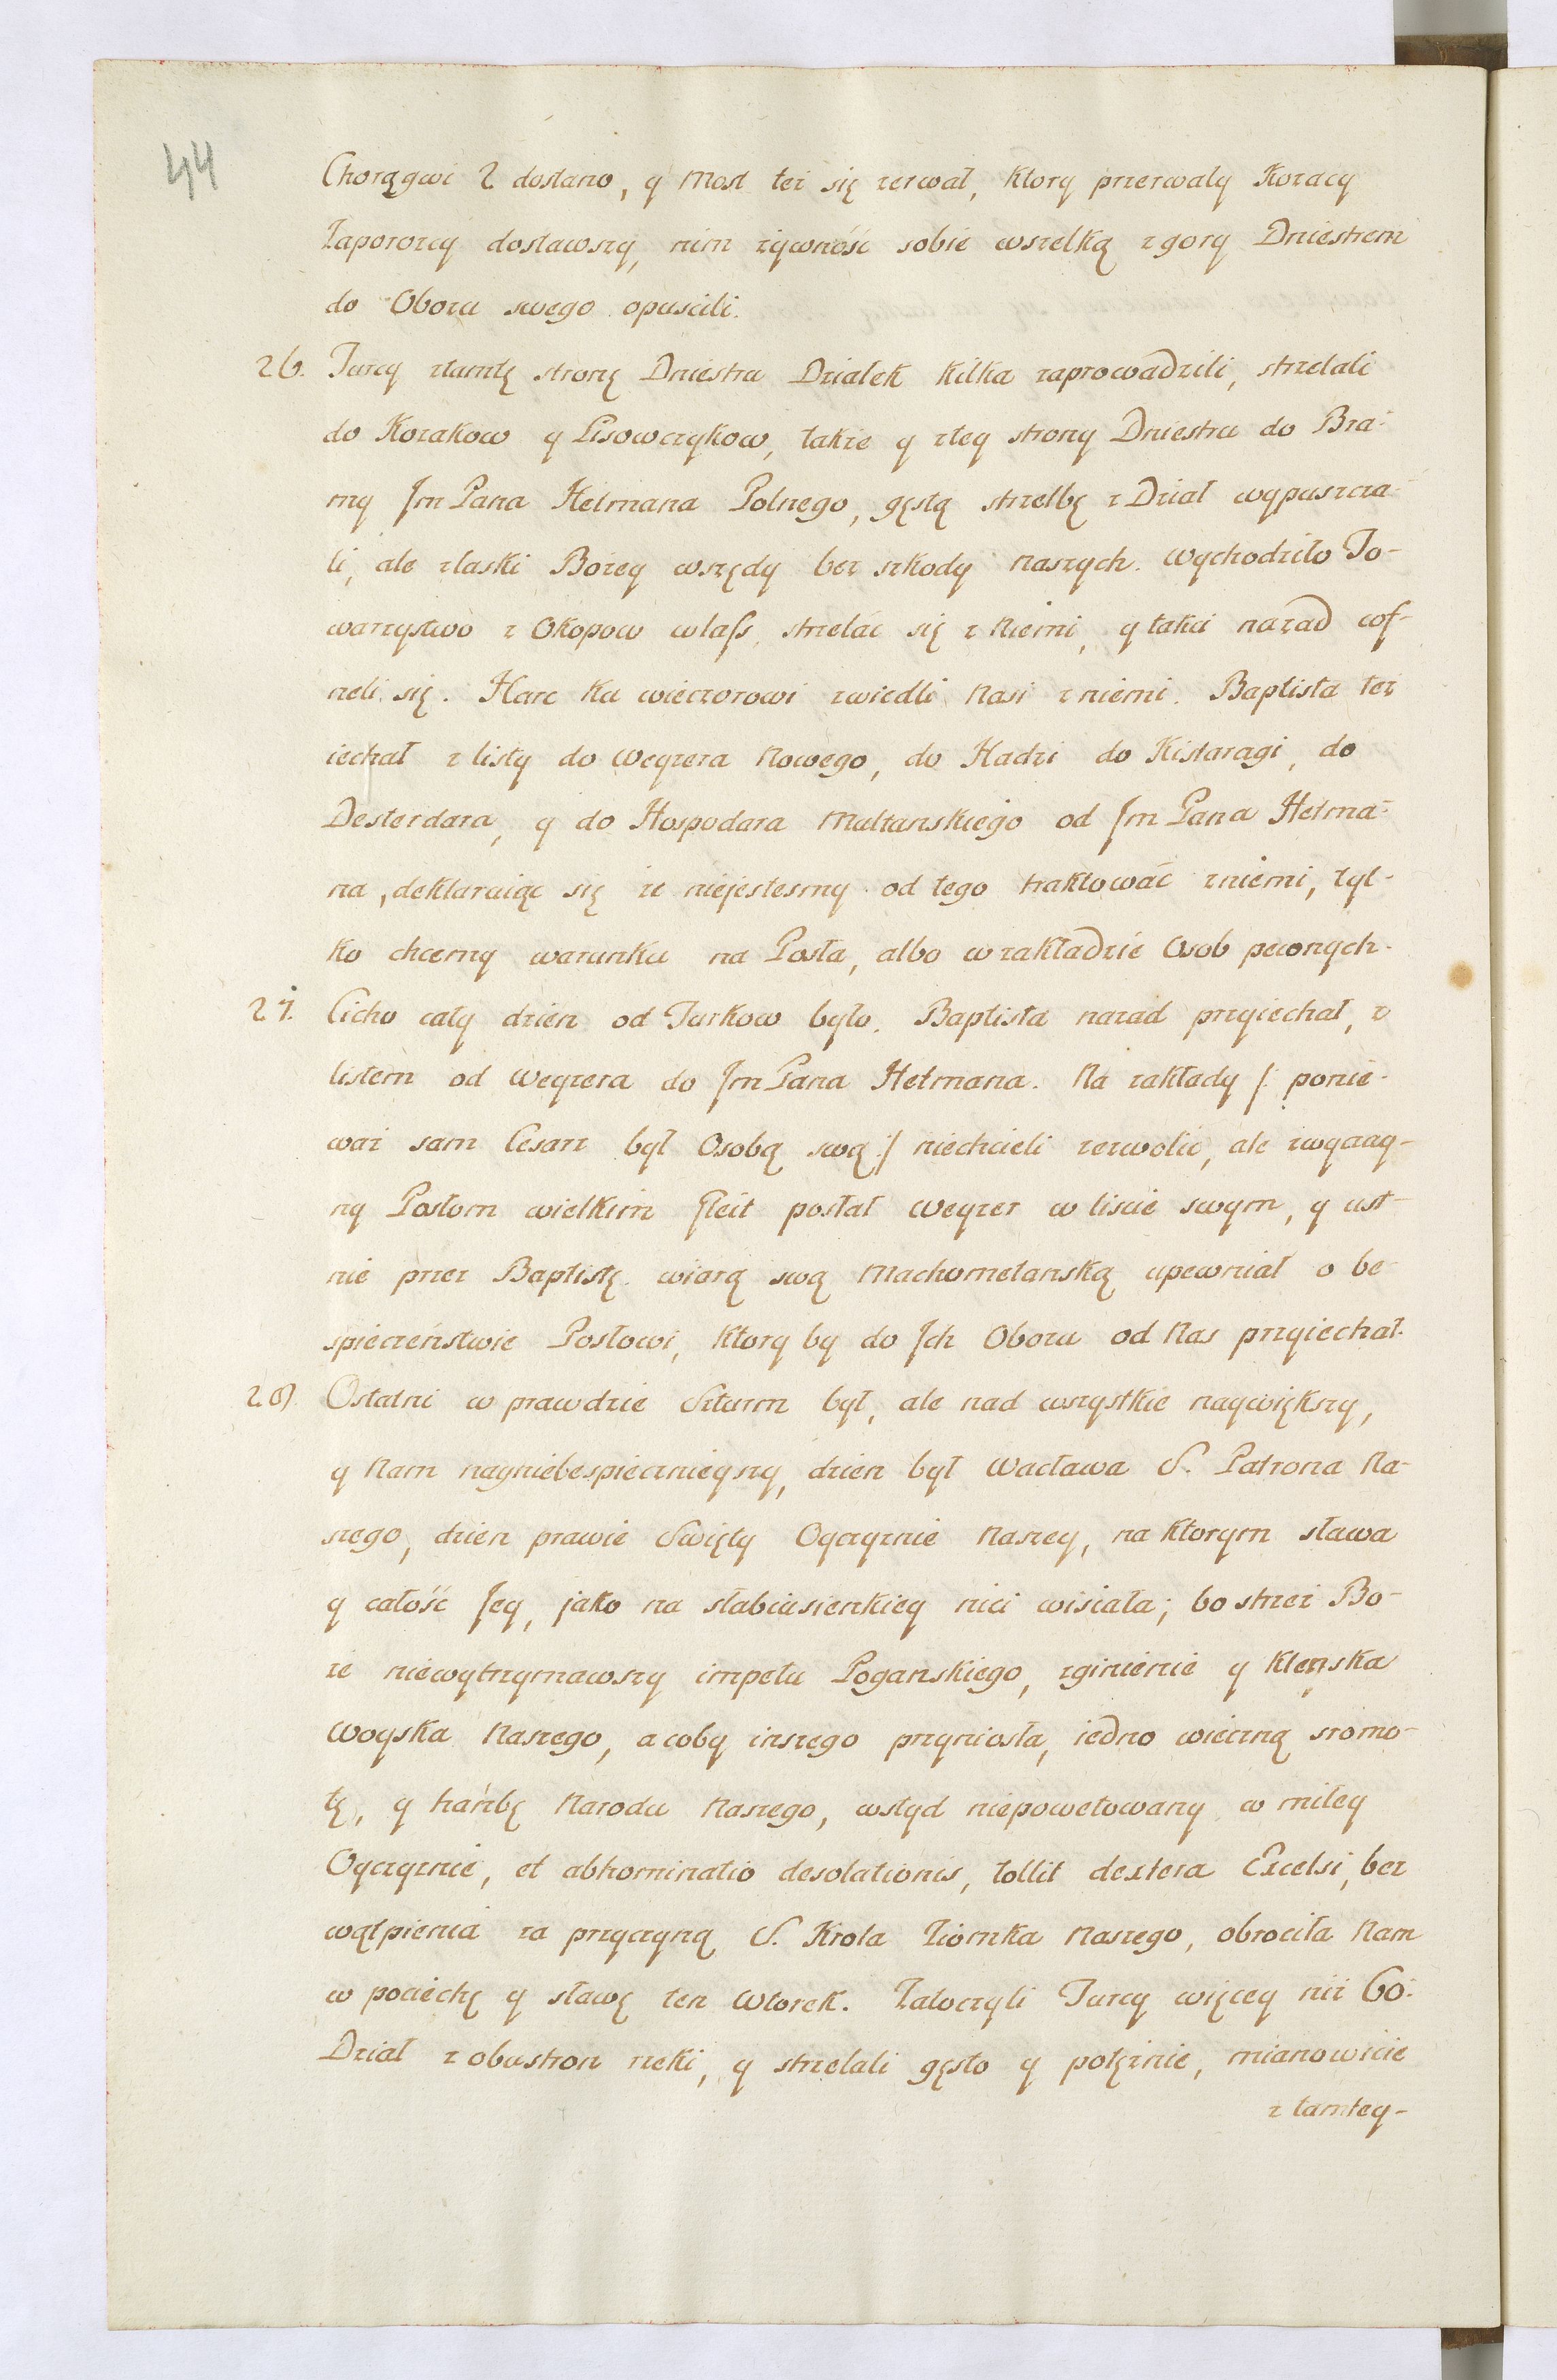 44
Chorągwi 2 dostano, y Most też się zerwał, ktory przerwały Kozacy
Zaporozcy dostawszy, nim żywność sobie wszelką z gory Dniestrem
do Obozu swego opuscili.
26. Turcy ztamtę stronę Dniestru Działek kilka zaprowadzili, strzelali
do Kozakow y Lisowczykow, także y ztey strony Dniestru do Bra-
my Jm Pana Hetmana Polnego, gęstą strzelbę z Dział wypuszcza-
li, ale złaski Bożey wszędy bez szkody naszych. wychodziło To-
warzystwo z Okopow włass. strzelać się z Niemi, y takci nazad cof-
neli się. Harc ku wieczorowi zwiedli Nasi z niemi. Baptista też
iechał z listy do Wezyera Nowego, do Hadzi do Kislaragi, do
Desterdara, y do Hospodara Multanskiego od Jm Pana Hetma-
na, deklaruiąc się że niejestesmy od tego traktować zniemi, tyl-
ko chcemy warunku na Posła, albo w zakładzie Osob pewnych.
27. Cicho cały dzien od Turkow było. Baptista nazad przyiechał, z
listem od Wezyera do Jm Pana Hetmana. Na zakłady /: ponie-
waż sam Cesarz był Osobą swą :/ niechcieli zezwolić, ale zwyczay-
ny Posłom wielkim Gleit posłał Wezyer w liscie swym, y ust-
nie przez Baptistę wiarą swą Machometanską upewniał o be-
spieczeństwie Posłowi, ktory by do Jch Obozu od Nas przyiechał.
28. Ostatni w prawdzie Szturm był, ale nad wszystkie naywiększy,
y Nam nayniebespiecznieyszy, dzien był Wacława S. Patrona Na-
szego, dzien prawie Swięty Oyczyznie Naszey, na ktorym sława
y całość Jey, jako na słabiusienkiey nici wisiała; bo strzeż Bo-
że niewytrzymawszy impetu Poganskiego, zginienie y klęnska
Woyska Naszego, a coby inszego przyniosła, iedno wieczną sromo-
tę, y hańbę Narodu Naszego, wstyd niepowetowany w miłey
Oyczyznie, et abhominatio desolationis, tollit dextera Excelsi, bez
wątpienia za przyczyną S. Krola Ziomka Naszego, obrociła Nam
w pociechę y sławę ten Wtorek. Zatoczyli Turcy więcey niż 60.
Dział z obustron rzeki, y strzelali gęsto y potężnie, mianowicie
z tamtey-